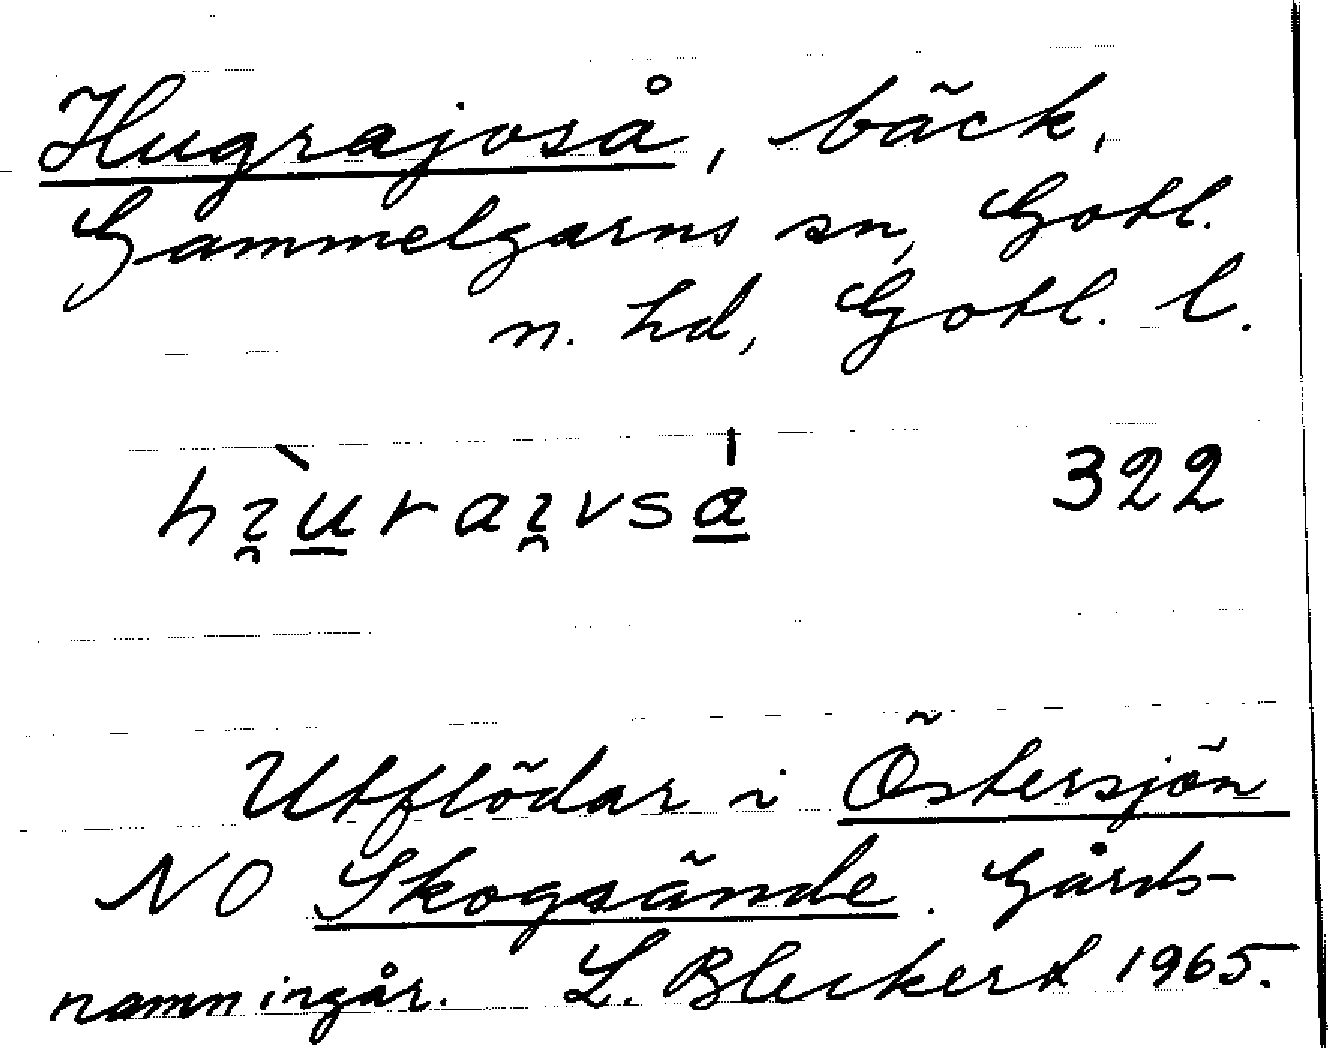 Hugrajoså, bäck,
Gammelgarns sn, Gotl.
n. hd, Gotl. l.
322
Utflödar i Östersjön
NO Skogsände. Gårds-
namn ingår. L. Bleckert 1965.